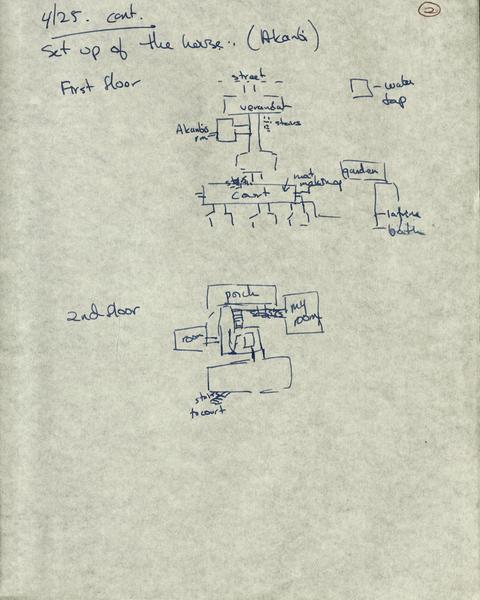 4/25. cont.
2
Set up of the house.. (Akanbi)
First floor
street
verandah
water
tap
Akanbi's
rm
stairs
garden
mat
making
stairs
Court
latrine
bath
2nd floor
porch
stairs
my
room
room
stairs
to court